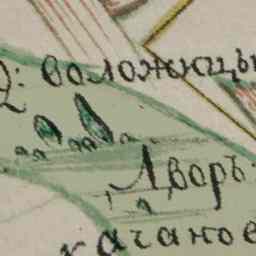 Д: воложицы
Дворъ.
качаное